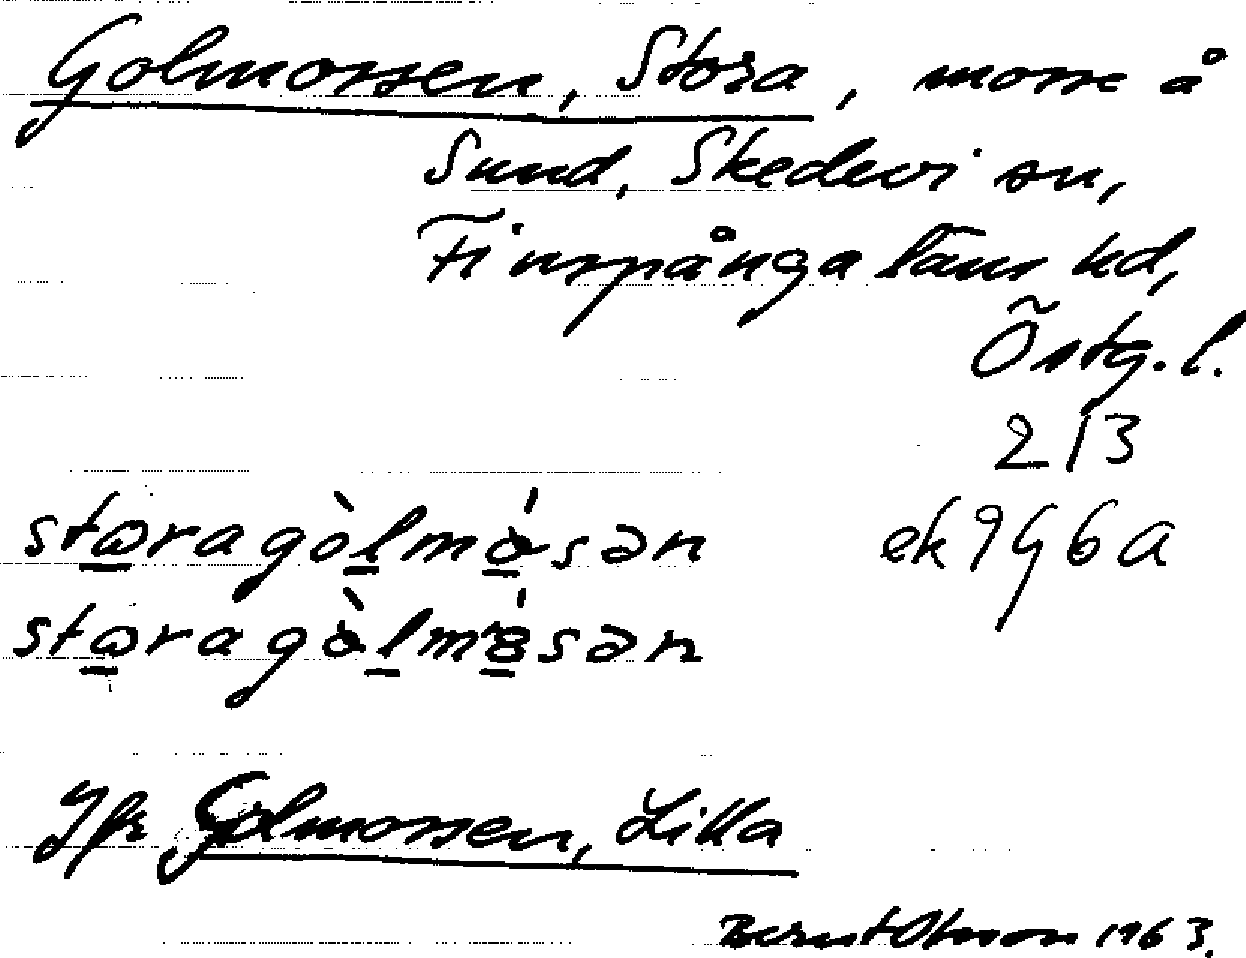 Golmossen, Stora, mosse å
Sund, Skedevi sn,
Finspånga läns hd,
Östg. l.
2/3
stɷragòlmǻsən ek 9G6a
stɷragòlmɞ́sən
Jfr Golmossen, Lilla
Bernt Olsson 1963.